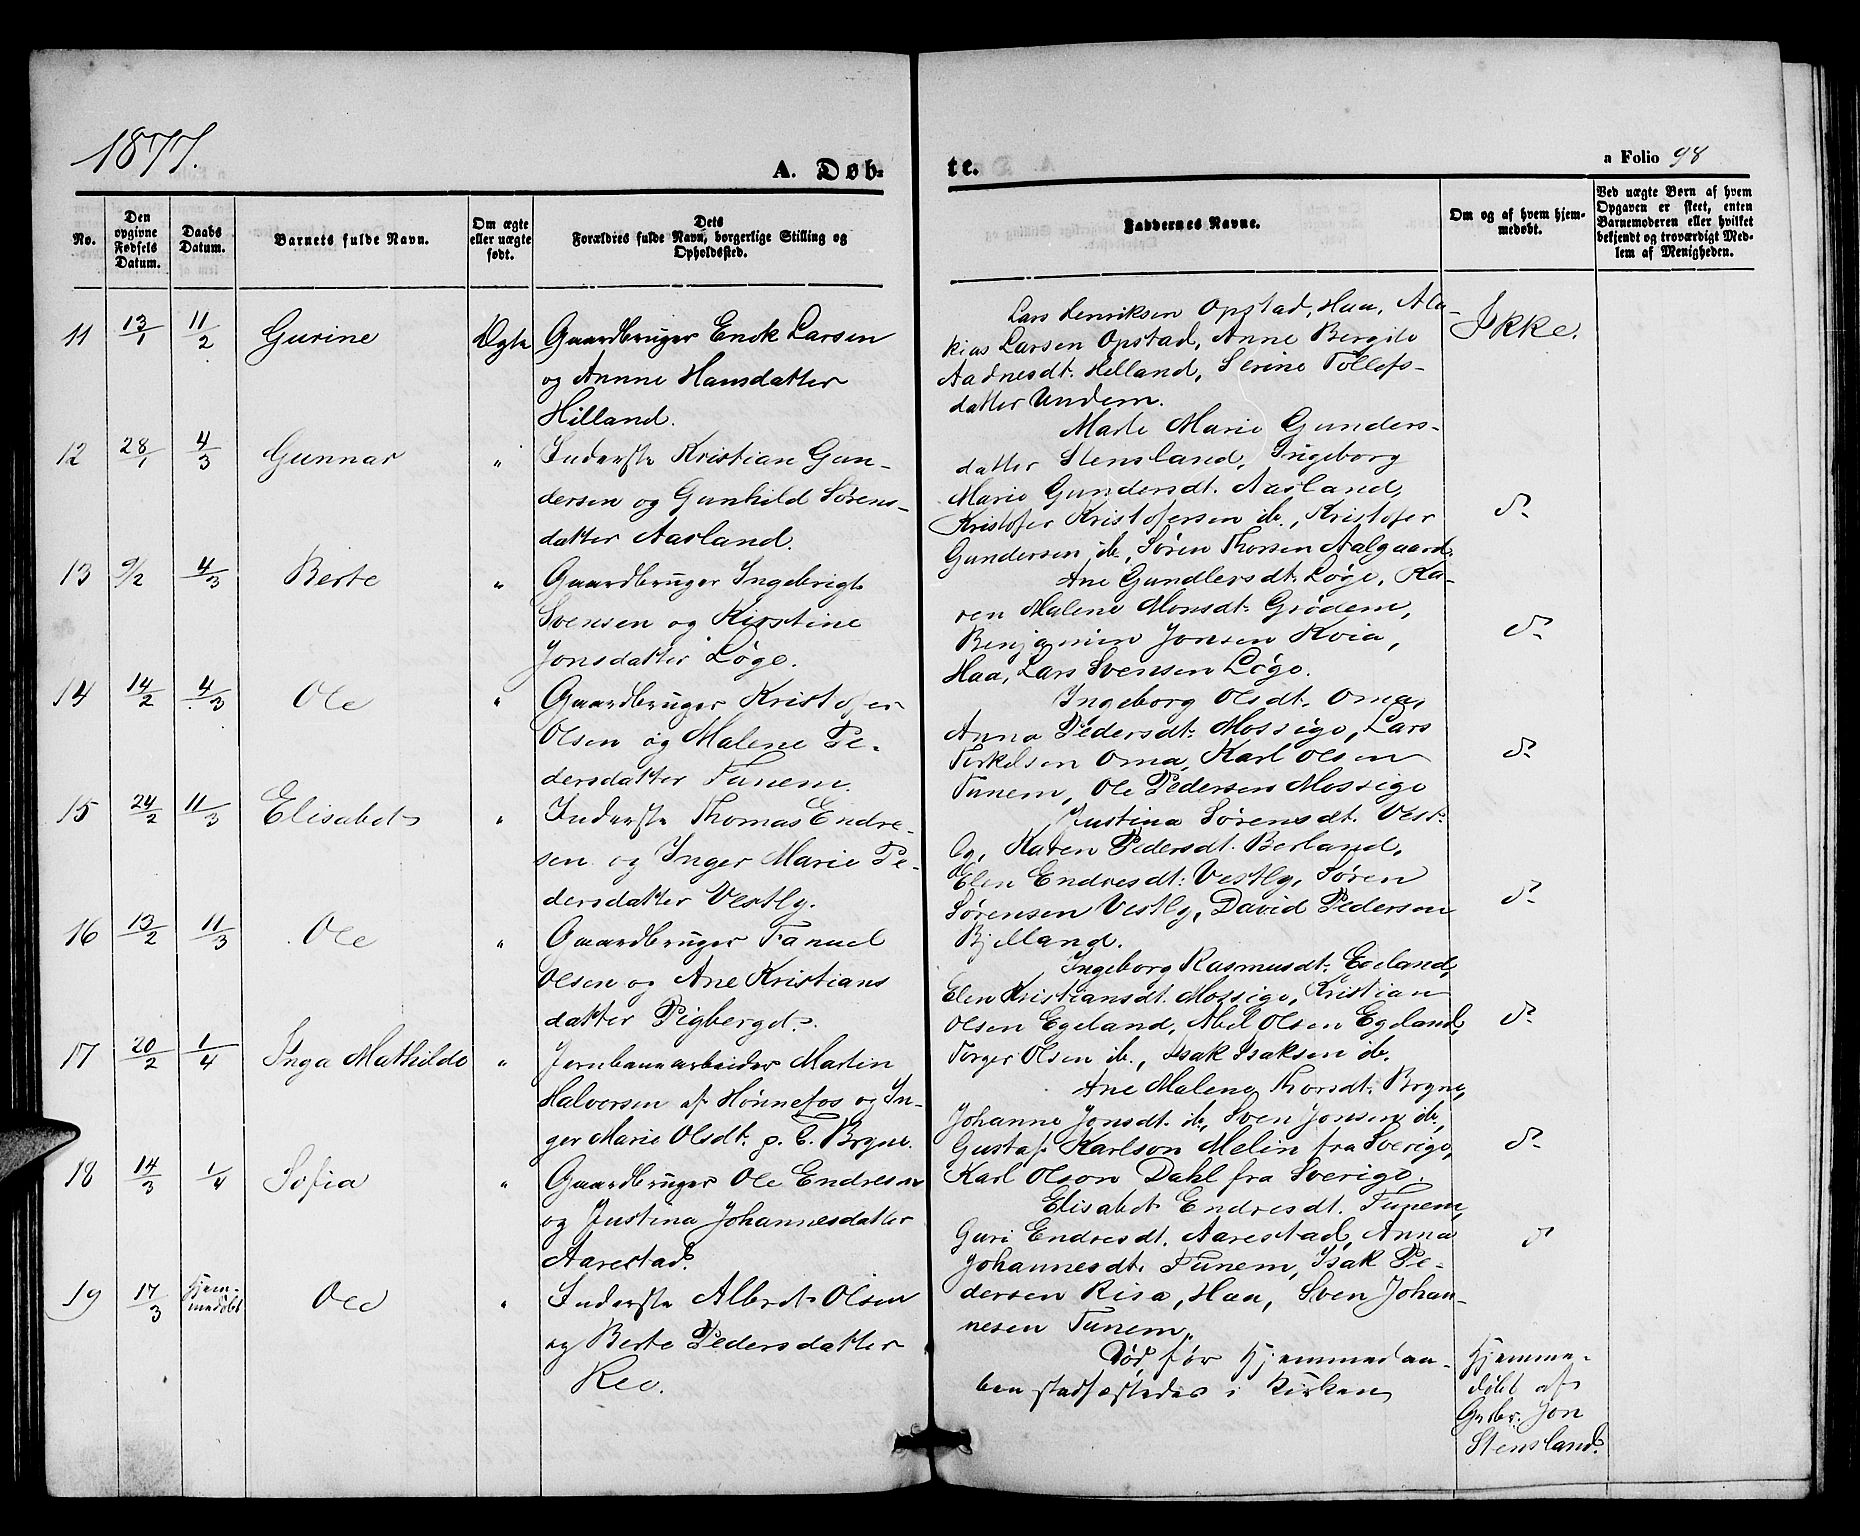 1877.
A. Døb-
te.
a Folio 98
No.
Den
opgivne
Fødsels
Datum.
Daabs
Datum.
Barnets fulde Navn.
Om ægte
eller uægte
født.
Dets
Forældres fulde Navn, borgerlige Stilling og
Opholdssted.
Faddernes Navne.
Om og af hvem hjem-
medøbt.
Ved uægte Børn af hvem
Opgaven er skeet, enten
Barnemoderen eller hvilket
bekjendt og troværdigt Med-
lem af Menigheden.
11 13/1 11/2 Gurine Ægte Gaardbruger Enok Larsen
og Annne Hansdatter
Hilland.
Lars Henriksen Opstad, Haa, Ala-
kias Larsen Opstad, Anne Bergite
Aadnesdt. Helland, Serine Tollefs-
datter Undem.
Ikke.
12 28/1 4/3 Gunnar " Inderste Kristian Gun-
dersen og Gunhild Sørens-
datter Aasland.
Marte Marie Gunders-
datter Stensland, Ingeborg
Marie Gundersdt. Aasland,
Kristofer Kristofersen ib., Kristofer
Gundersen ib., Søren Thorsen Aalgaard.
d-
13 9/2 4/3 Berte " Gaardbruger Ingebrigt
Svensen og Kirstine
Jonsdatter Løge.
Ane Gundlersdt. Løge, Ka-
ren Malene Monsdt. Grødem,
Benjamin Jonsen Kvia,
Haa, Lars Svensen Løge.
d-
14 14/2 4/3 Ole " Gaardbruger Kristofer
Olsen og Malene Pe-
dersdatter Tunem.
Ingeborg Olsdt. Oma,
Anna Pedersdt. Mossige, Lars
Terkelsen Oma, Karl Olsen
Tunem, Ole Pedersen Mossige
d-
15 24/2 11/3 Elisabet " Inderste Thomas Endre-
sen og Inger Marie Pe-
dersdatter Vestly.
Justina Sørensdt. Vest-
ly, Karen Pedersdt. Berland,
Elen Endresdt. Vestly, Søren
Sørensen Vestly, David Pedersen
Bjelland.
d-
16 13/2 11/3 Ole " Gaardbruger Fanuel
Olsen og Ane Kristians
datter Pigberget.
Ingeborg Rasmusdt. Egeland,
Elen Kristiansdt. Mossige, Kristian
Olsen Egeland, Abel Olsen Egeland,
Torger Olsen ib., Isak Isaksen ib.
d-
17 20/2 1/4 Inga Mathilde " Jernbanearbeider Martin
Halvorsen af Hønnefos og In-
ger Marie Olsdt. p. t. Bryne.
Ane Malena Thorsdt. Bryne,
Johanne Jonsdt. ib., Sven Jonsen ib.,
Gustaf Karlson Melin fra Sverige,
Karl Olson Dahl fra Sverige.
d-
18 14/3 1/4 Sofia " Gaardbruger Ole Endresen
og Justina Johannesdatter
Aarestad.
Elisabet Endresdt. Tunem,
Guri Endresdt. Aarestad, Anna
Johannesdt. Tunem, Isak Pe-
dersen Risa, Haa, Sven Johan-
nesen Tunem.
d
19 17/3 Hjem-
medøbt Ole " Inderste Albert Olsen
og Berte Pedersdatter
Ree.
Død før Hjemmedaa-
ben stadfæstedes i Kirken
Hjemme-
døbt af
Grdbr. Jon
Stensland.